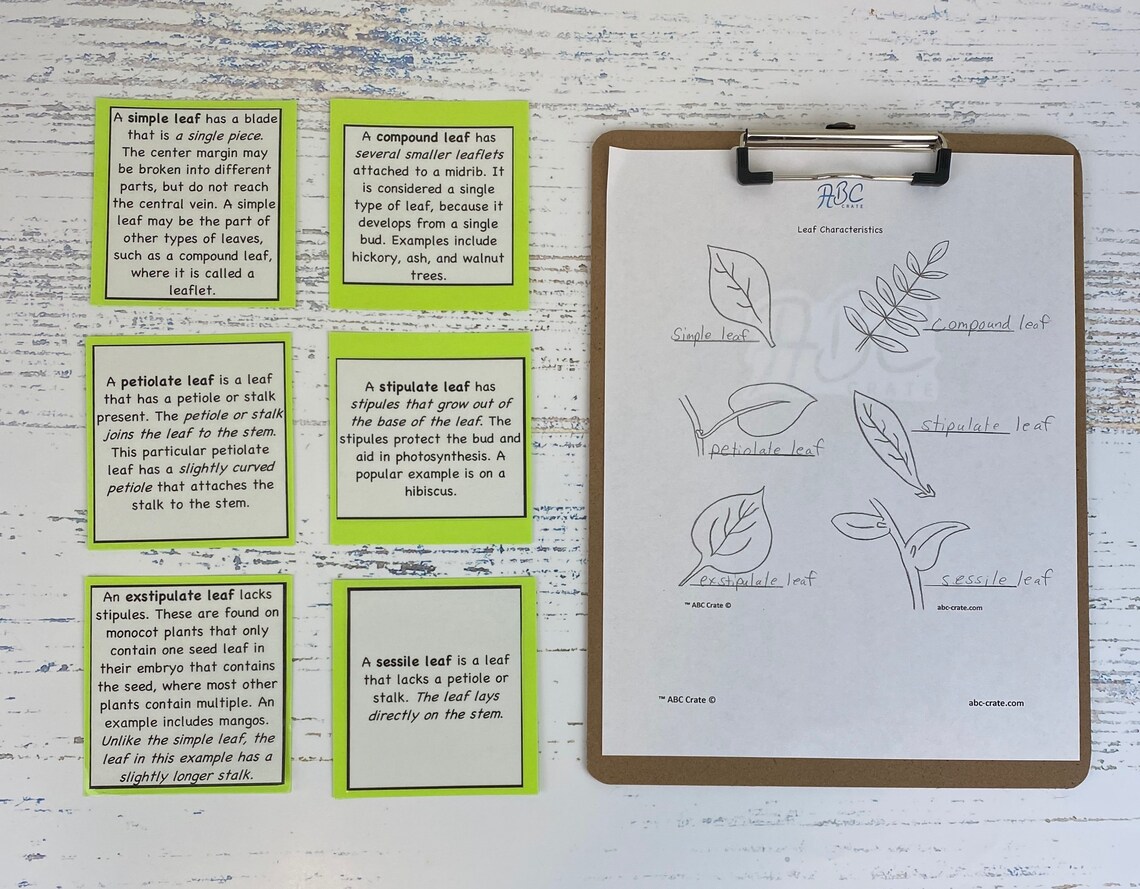 A simple leaf has a blade
that is a single piece.
The center margin may
be broken into different
parts, but do not reach
the central vein. A simple
leaf may be the part of
other types of leaves,
such as a compound leaf,
where it is called a
leaflet.
A compound leaf has
several smaller leaflets
attached to a midrib. It
is considered a single
type of leaf, because it
develops from a single
bud. Examples include
hickory, ash, and walnut
trees.
A petiolate leaf is a leaf
that has a petiole or stalk
present. The petiole or stalk
joins the leaf to the stem.
This particular petiolate
leaf has a slightly curved
petiole that attaches the
stalk to the stem.
A stipulate leaf has
stipules that grow out of
the base of the leaf. The
stipules protect the bud and
aid in photosynthesis. A
popular example is on a
hibiscus.
An exstipulate leaf lacks
stipules. These are found on
monocot plants that only
contain one seed leaf in
their embryo that contains
the seed, where most other
plants contain multiple. An
example includes mangos.
Unlike the simple leaf, the
leaf in this example has a
slightly longer stalk.
A sessile leaf is a leaf
that lacks a petiole or
stalk. The leaf lays
directly on the stem.
ABC
CRATE
Leaf Characteristics
ABC
CRATE
Simple leaf
Compound leaf
petiolate leaf
stipulate leaf
exstipulate leaf
sessile leaf
™ ABC Crate ©
abc-crate.com
™ ABC Crate ©
abc-crate.com